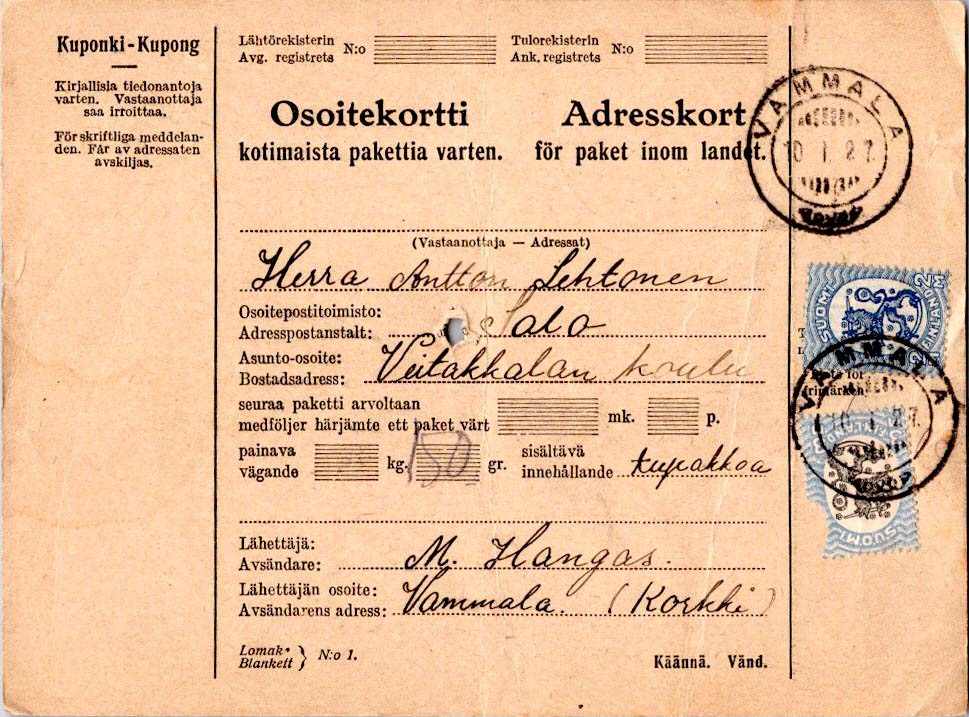 Kuponki - Kupong
Kirjallisia tiedonantoja
varten. Vastaanottaja
saa irroittaa.
För skriftliga meddelan-
den. Får av adressaten
avskiljas.
Lähtörekisterin
Avg. registrets N:o
Tulorekisterin
Ank. registrets N:o
Osoitekortti
kotimaista pakettia varten.
Adresskort
för paket inom landet.
VAMMALA
10. I. 27.
(Vastaanottaja — Adressat)
Herra Antton Lehtonen
Osoitepostitoimisto:
Adresspostanstalt: Salo
Asunto-osoite:
Bostadsadress: Veitakkalan koulu
seuraa paketti arvoltaan
medföljer härjämte ett paket värt mk. p.
painava
vägande kg. 150 gr.
sisältävä
innehållande tupakkoa
Lähettäjä:
Avsändare: M. Hangas.
Lähettäjän osoite:
Avsändarens adress: Vammala. (Korkki)
Lomake
Blankett } N:o 1.
Käännä. Vänd.
SUOMI 2 M FINLAND 2 M
för
frimärken
VAMMALA
10. I. 27.
SUOMI